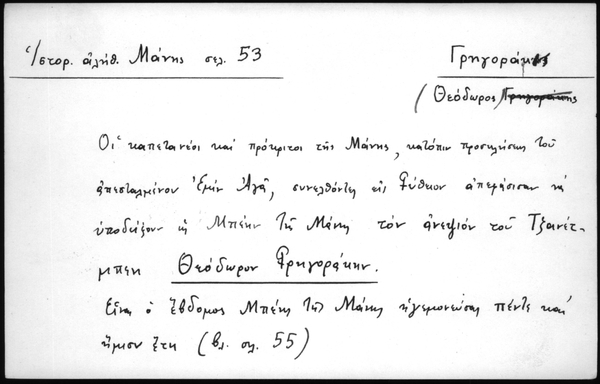 Ἱστορ. ἀλήθ. Μάνης σελ. 53
Γρηγοράκης
(Θεόδωρος) Γρηγοράκης
Οἱ καπετανέοι καὶ πρόκριτοι τῆς Μάνης, κατόπιν προσκλήσεως τοῦ
ἀπεσταλμένου Ἐμὶν Ἀγᾶ, συνελθόντες εἰς Γύθειον ἀπεφάσισαν νὰ
ὑποδείξουν ὡς Μπέην τῆς Μάνης τὸν ἀνεψιόν τοῦ Τζανέτ-
μπεη Θεόδωρον Γρηγοράκην.
Εἶναι ὁ ἕβδομος Μπέης τῆς Μάνης ἡγεμονεύσας πέντε καὶ
ἥμισυ ἔτη (βλ. σελ. 55)